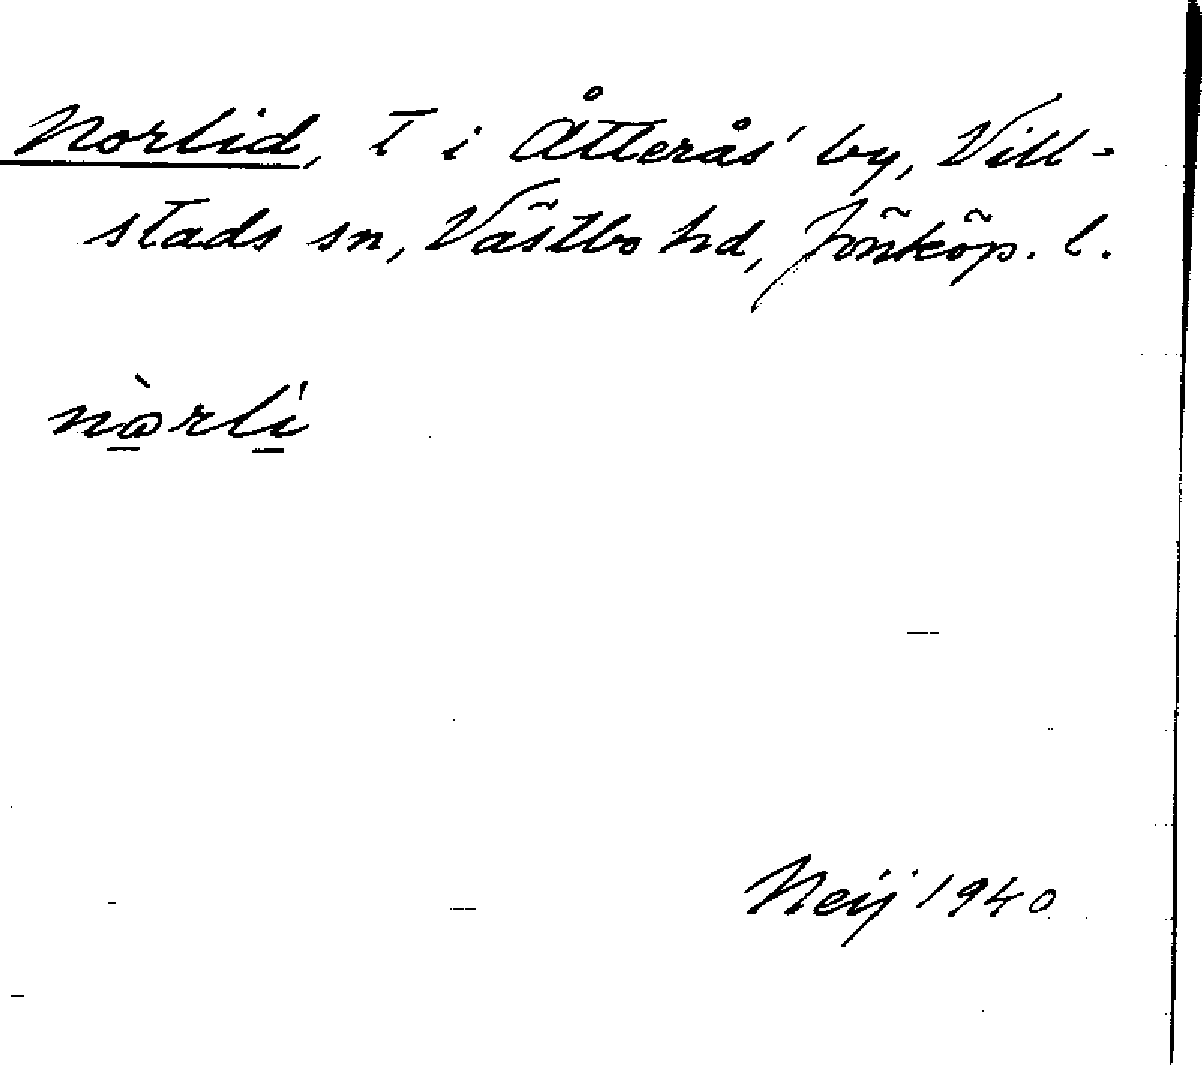 Norlid, T i Åtterås' by, Vill-
stads sn, Västbo hd, Jönköp. l.
nòrli
Neij 1940